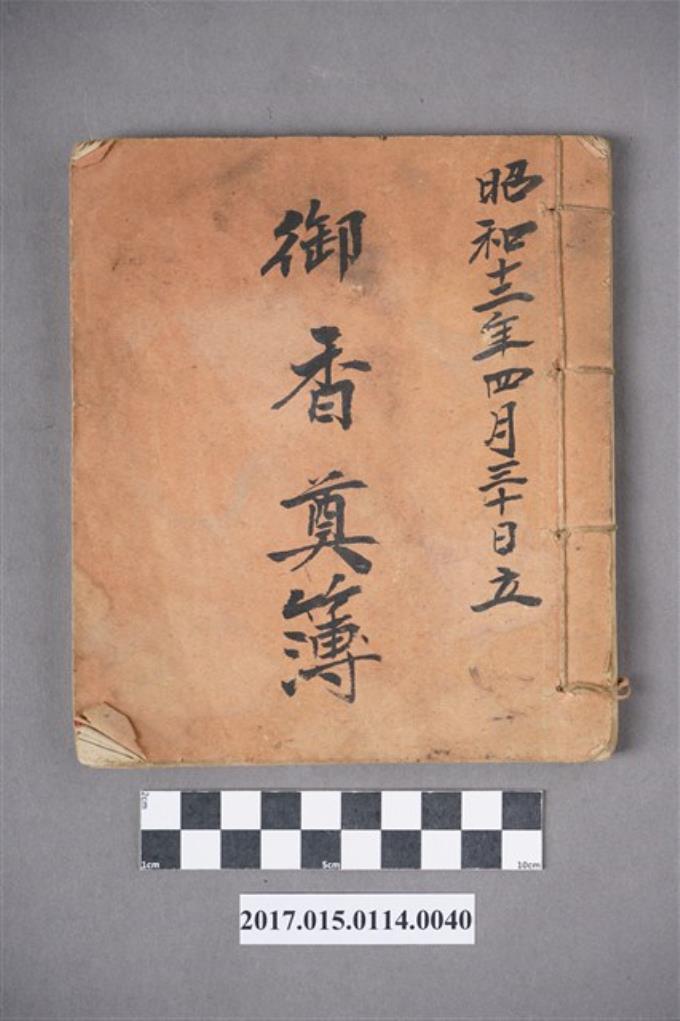 昭和十二年四月三十日立
御香奠簿
2cm
1cm 5cm 10cm
2017.015.0114.0040